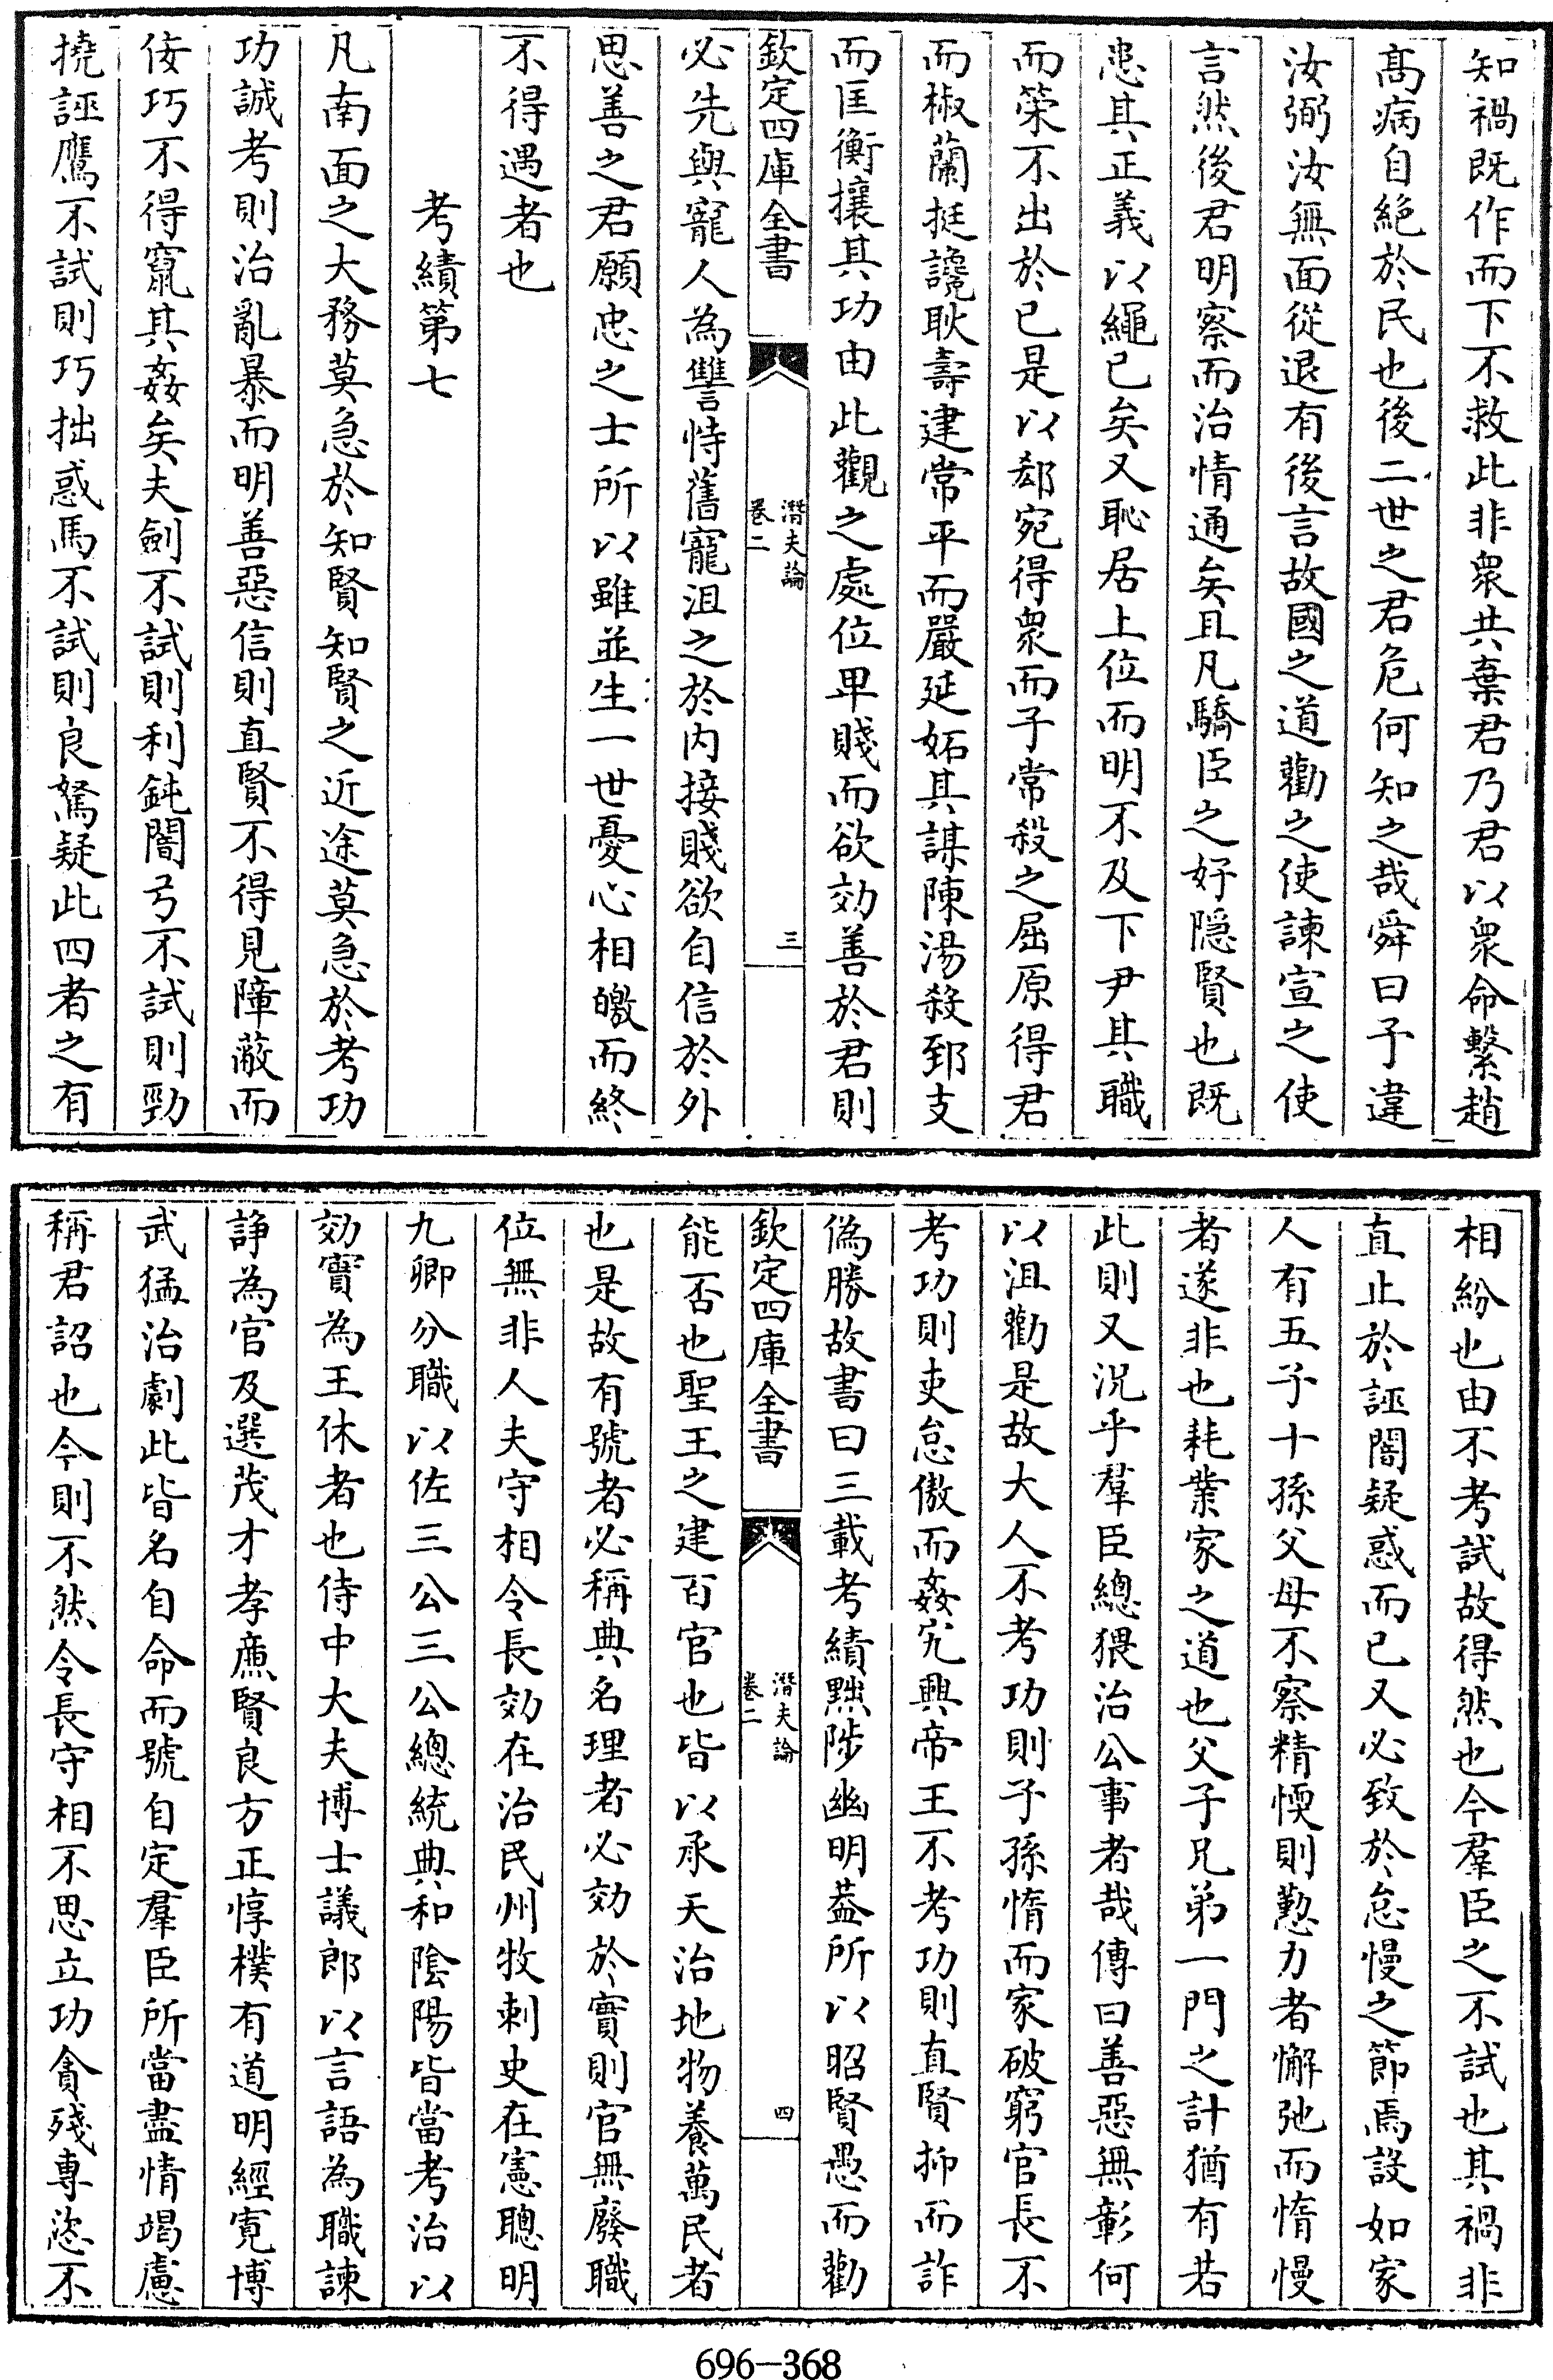 知禍既作而下不救此非衆共棄君乃君以衆命繫趙
髙病自絶於民也後二世之君危何知之哉舜曰予違
汝弼汝無面從退有後言故國之道勸之使諫宣之使
言然後君明察而治情通矣且凡驕臣之好隠賢也既
患其正義以繩已矣又恥居上位而明不及下尹其職
而策不出於已是以郄宛得衆而子常殺之屈原得君
而椒蘭挺讒耿壽建常平而嚴延妬其謀陳湯殺郅支
而匡衡攘其功由此觀之處位卑賤而欲効善於君則
欽定四庫全書
潛夫論
卷二
三
必先與寵人為讐恃舊寵沮之於内接賤欲自信於外
思善之君願忠之士所以雖並生一世憂心相皦而終
不得遇者也
考績第七
凡南面之大務莫急於知賢知賢之近途莫急於考功
功誠考則治亂暴而明善惡信則直賢不得見障蔽而
佞巧不得竄其姦矣夫劍不試則利鈍闇弓不試則勁
撓誣鷹不試則巧拙惑馬不試則良駑疑此四者之有
相紛也由不考試故得然也今羣臣之不試也其禍非
直止於誣闇疑惑而已又必致於怠慢之節焉設如家
人有五子十孫父母不察精愞則懃力者懈弛而惰慢
者遂非也耗業家之道也父子兄弟一門之計猶有若
此則又況乎羣臣總猥治公事者哉傳曰善惡無彰何
以沮勸是故大人不考功則子孫惰而家破窮官長不
考功則吏怠傲而姦宄興帝王不考功則直賢抑而詐
偽勝故書曰三載考績黜陟幽明葢所以昭賢愚而勸
欽定四庫全書
潛夫論
卷二
四
能否也聖王之建百官也皆以承天治地物養萬民者
也是故有號者必稱典名理者必効於實則官無廢職
位無非人夫守相令長効在治民州牧刺史在憲聰明
九卿分職以佐三公三公總統典和陰陽皆當考治以
効實為王休者也侍中大夫博士議郎以言語為職諫
諍為官及選茂才孝廉賢良方正惇樸有道明經寛博
武猛治劇此皆名自命而號自定羣臣所當盡情竭慮
稱君詔也今則不然令長守相不思立功貪殘專恣不
696-368